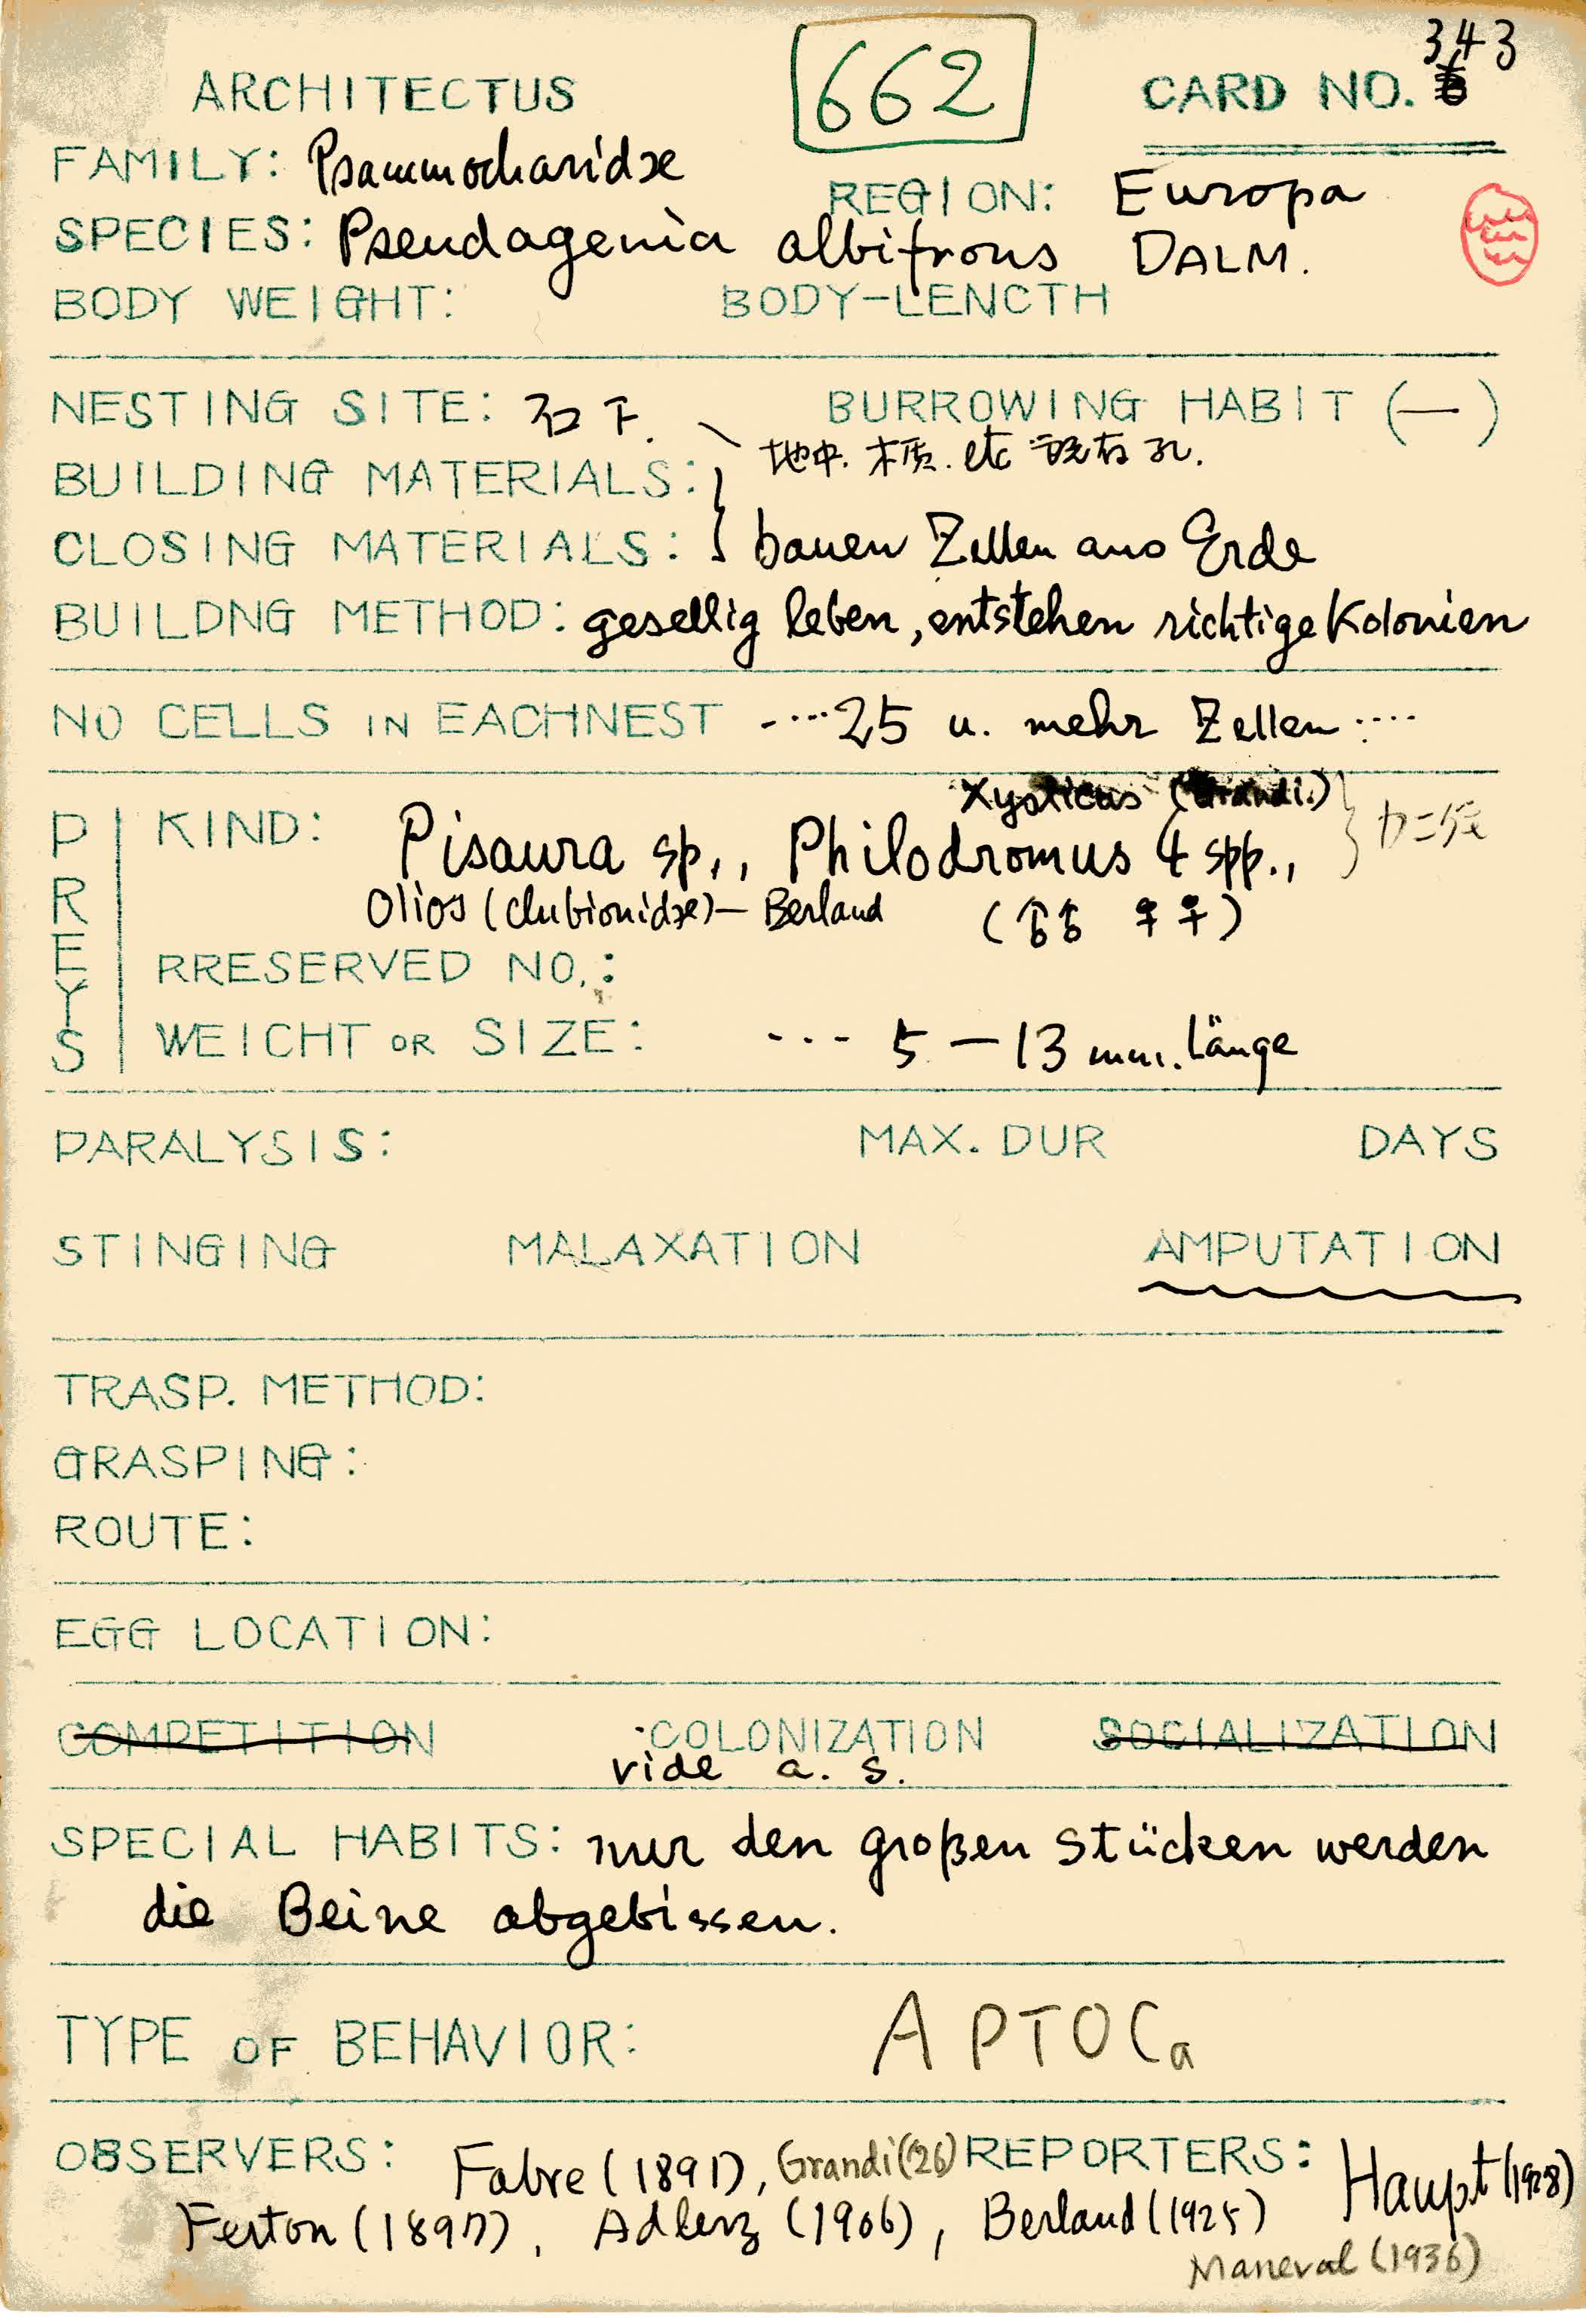 ARCHITECTUS 662 CARD NO. 343
FAMILY: Psammocharidæ
REGION: Europa
SPECIES: Pseudagenia albifrons DALM.
BODY WEIGHT: BODY-LENCTH
NESTING SITE: 石下. BURROWING HABIT (—)
地中. 木质. etc 既存孔.
BUILDING MATERIALS:
CLOSING MATERIALS: bauen Zellen aus Erde
BUILDNG METHOD: gesellig leben, entstehen richtige Kolonien
NO CELLS IN EACHNEST ----25 u. mehr Zellen ----
Xysticus (Grandi.)
PREYS
KIND: Pisaura sp., Philodromus 4 spp.,
Olios (Clubionidæ)— Berland (♂♂ ♀♀)
RRESERVED NO.:
WEICHT OR SIZE: --- 5 — 13 mm. Länge
PARALYSIS: MAX. DUR DAYS
STINGING MALAXATION AMPUTATION
TRASP. METHOD:
GRASPING:
ROUTE:
EGG LOCATION:
COMPETITION COLONIZATION SOCIALIZATION
vide a. s.
SPECIAL HABITS: nur den großen Stücken werden
die Beine abgebissen.
TYPE OF BEHAVIOR: APTOCa
OBSERVERS: Fabre (1891), Grandi ('26) REPORTERS: Haupt (1928)
Ferton (1897), Adlerz (1906), Berland (1925)
Maneval (1936)